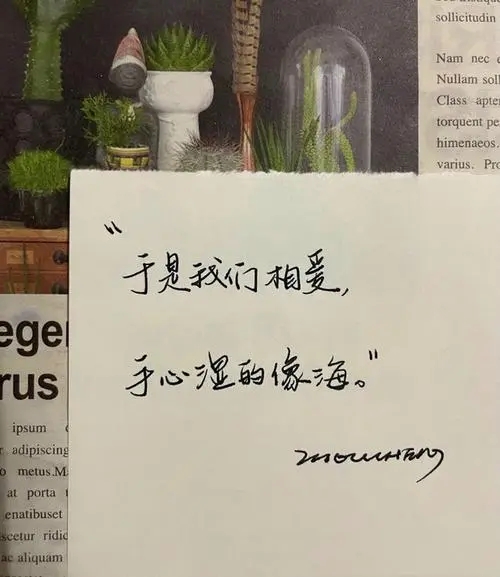 sollicitudin
Nam nec
Nullam soll
Class apten
torquent pe
himenaeos.
varius. Pro
"于是我们相爱,
手心湿的像海。"
ege
rus
ipsum
adipiscing
metus.Ma
at porta
enatibuset
scetur ridic
ac aliquam